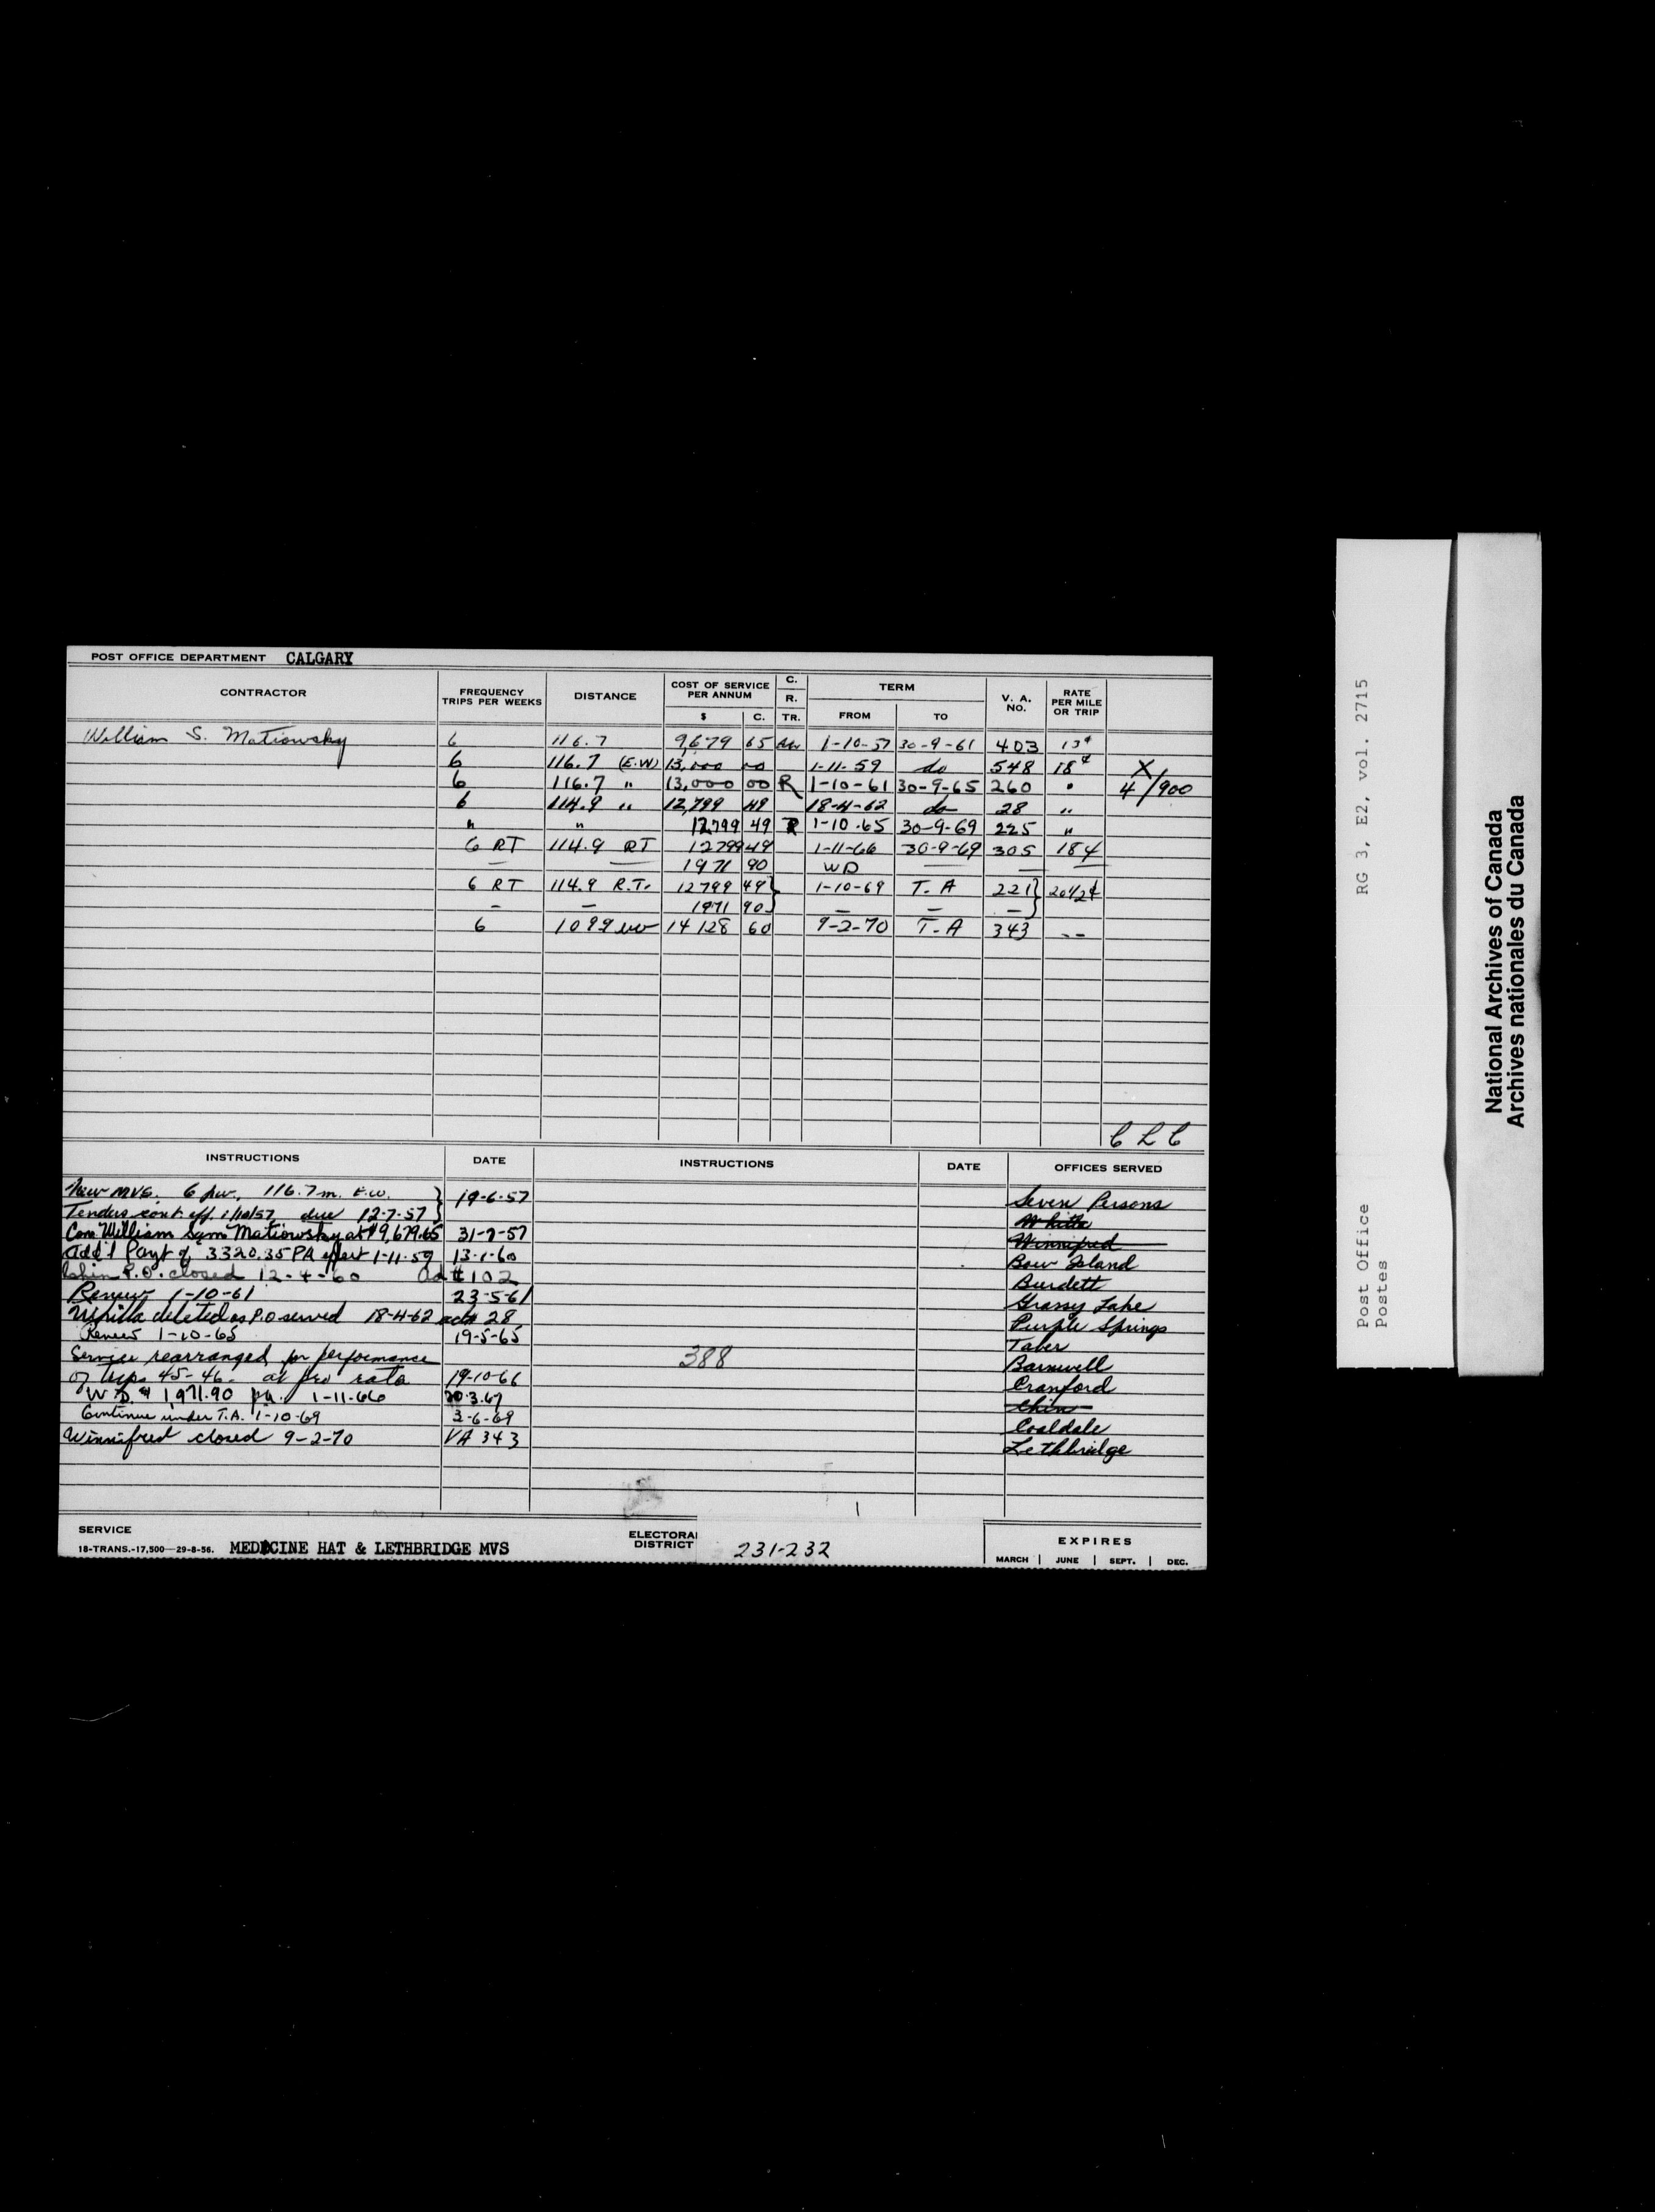 POST OFFICE DEPARTMENT CALGARY
CONTRACTOR FREQUENCY TRIPS PER WEEKS DISTANCE COST OF SERVICE PER ANNUM $ C. C. R. TR. TERM FROM TO V. A. NO. RATE PER MILE OR TRIP
William S. Matiowsky 6 116.7 9,679 65 1-10-57 30-9-61 403 13¢
6 116.7 (E.W) 13,000 00 1-11-59 do 548 18¢ X
6 116.7 " 13,000 00 R 1-10-61 30-9-65 260 " 4/900
6 114.9 " 12,799 49 18-4-62 do 28 "
" " 12799 49 R 1-10-65 30-9-69 225 "
6 RT 114.9 RT 12799 49 1-11-66 30-9-69 305 18¢
— — 1971 90 WD — — —
6 RT 114.9 R.T. 12799 49 } 1-10-69 T.A 221 } 20½¢
— — 1971 90 } — — —
6 109.9 14128 60 9-2-70 T-A 343 --
C L C
INSTRUCTIONS DATE INSTRUCTIONS DATE OFFICES SERVED
New MVS. 6 pw, 116.7 m. E.W. } 19-6-57 Seven Persons
Tenders cont. eff. 1/10/57 due 12-7-57 } Whitla
Con. William Sam Matiowsky at $9,679.65 31-7-57 Winnifred
Add'l Payt of 3320.35 PA effect 1-11-59 13-1-60 Bow Island
Chin P.O. closed 12-4-60 Ad # 102 Burdett
Renew 1-10-61 23-5-61 Grassy Lake
Whitla deleted as P.O served 18-4-62 28 Purple Springs
Renew 1-10-65 19-5-65 Taber
Service rearranged for performance 388 Barnwell
of trips 45-46. at pro rata 19-10-66 Cranford
W.D. $1971.90 pa. 1-11-66 20.3.67 Chin
Continue under T.A. 1-10-69 3-6-69 Coaldale
Winnifred closed 9-2-70 VA 343 Lethbridge
SERVICE
18-TRANS.-17,500—29-8-56. MEDICINE HAT & LETHBRIDGE MVS
ELECTORAL DISTRICT 231-232
EXPIRES
MARCH | JUNE | SEPT. | DEC.
Post Office RG 3, E2, vol. 2715
Postes
National Archives of Canada
Archives nationales du Canada